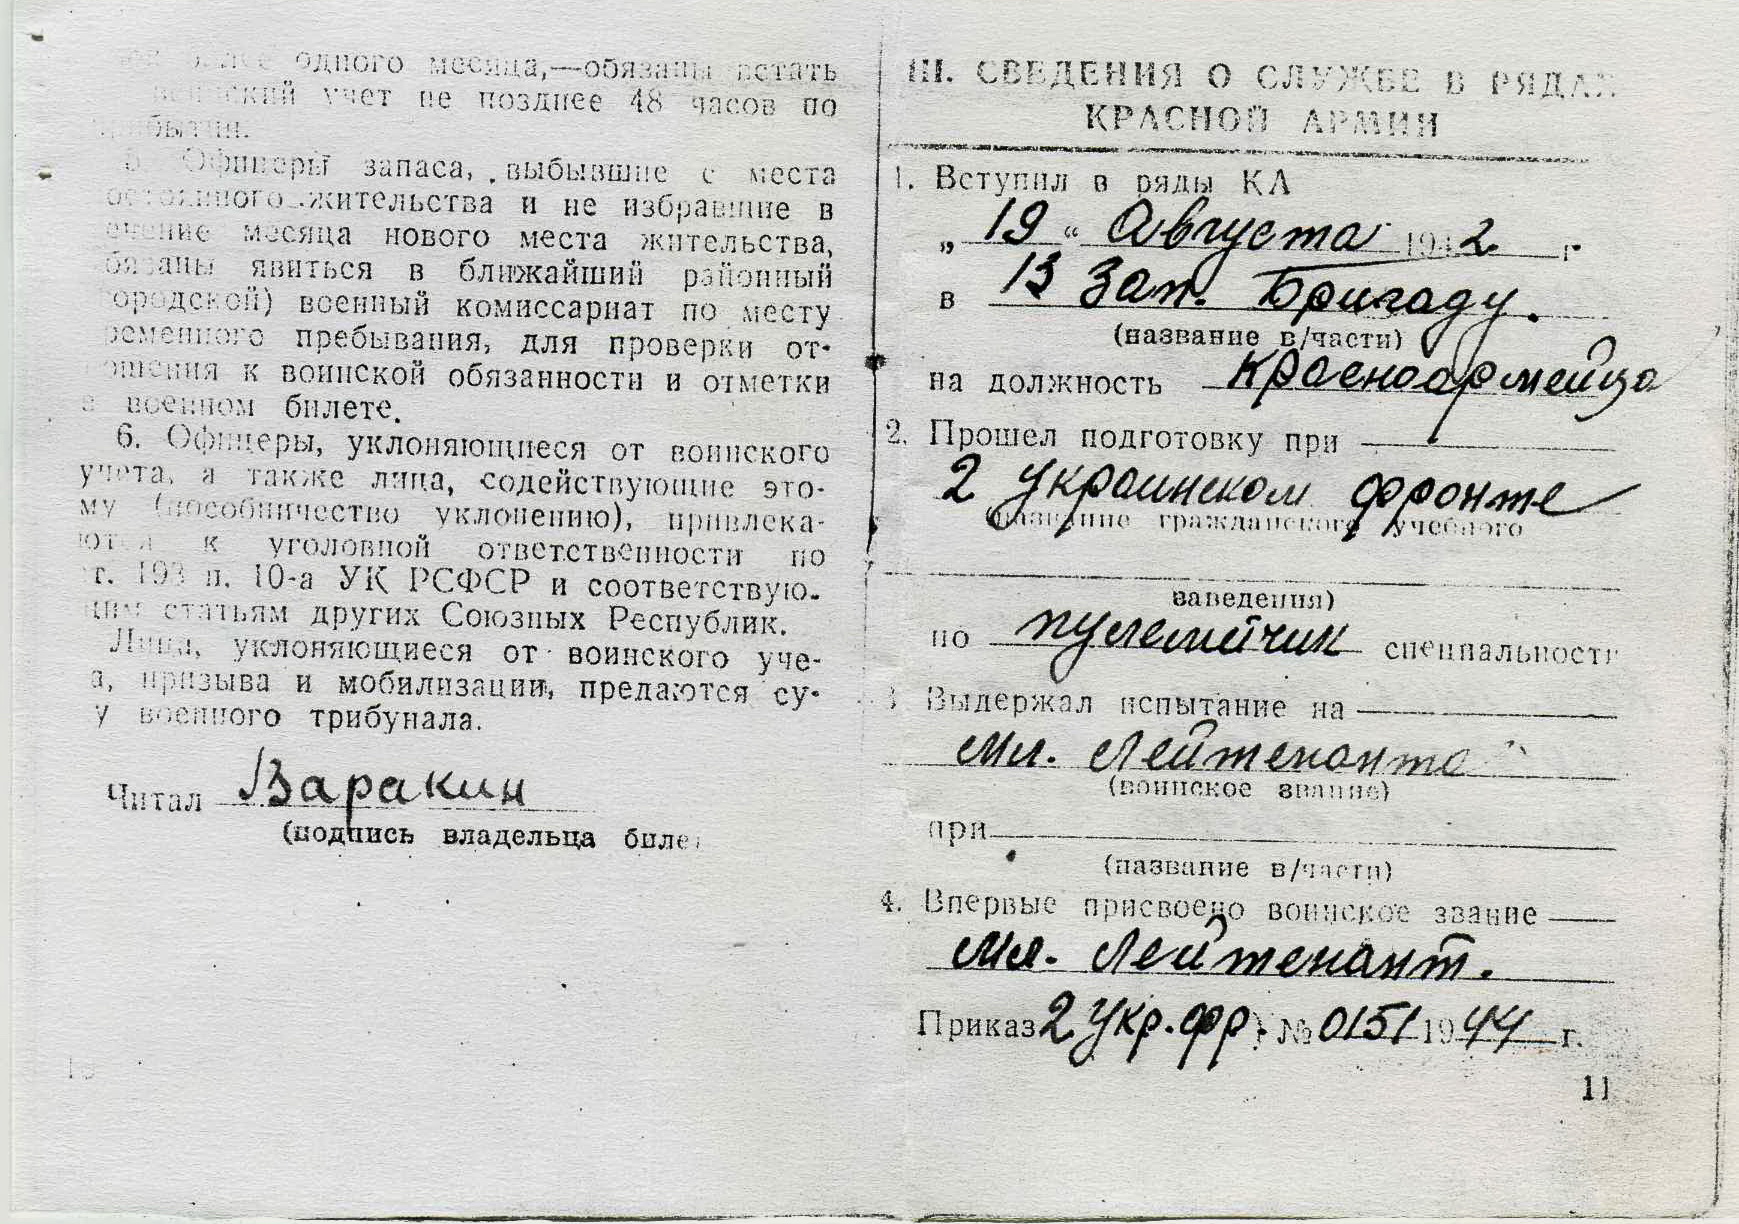 одного месяца,—обязаны встать
учет не позднее 48 часов по
Офицеры запаса, выбывшие с места
жительства и не избравшие в
месяца нового места жительства,
явиться в ближайший районный
военный комиссариат по месту
пребывания, для проверки от-
к воинской обязанности и отметки
в военном билете.
6. Офицеры, уклоняющиеся от воинского
учета, а также лица, содействующие это-
му (пособничество уклонению), привлека-
ются к уголовной ответственности по
ст. 193 п. 10-а УК РСФСР и соответствую-
статьям других Союзных Республик.
Лица, уклоняющиеся от воинского уче-
а, призыва и мобилизации, предаются су-
у военного трибунала.
Читал Варакин
(подпись владельца биле
III. СВЕДЕНИЯ О СЛУЖБЕ В РЯДАХ
КРАСНОЙ АРМИИ
1. Вступил в ряды КА
„ 19 “ Августа 1942 г
в 13 Зап. Бригаду.
(название в/части)
на должность Красноармейца
2. Прошел подготовку при
2 Украинском фронте
название гражданского учебного
заведения)
по пулемётчик специальности
3 Выдержал испытание на
Мл. Лейтенанта
(воинское звание)
при
(название в/части)
4. Впервые присвоено воинское звание
Мл. Лейтенант.
Приказ 2 Укр. фр. № 0151 1944 г.
11